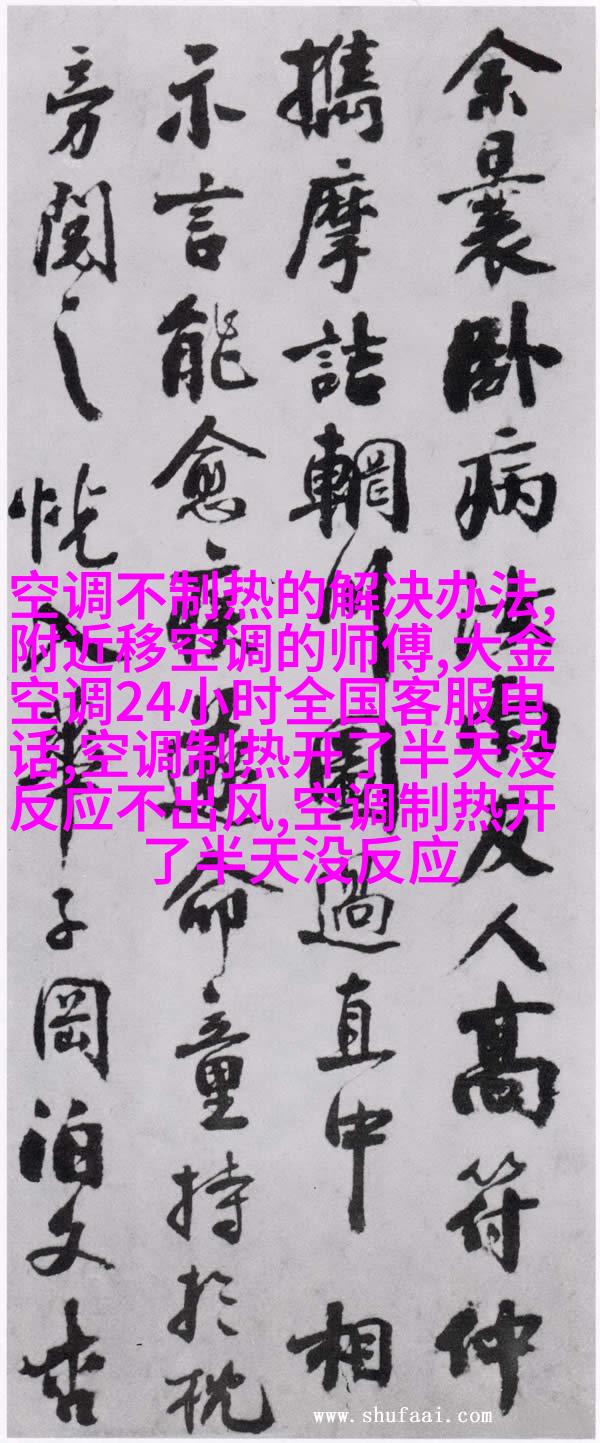 余曩卧病汝南友人高符仲
攜摩詰輞川圖過直中相
示言能愈疾遂命童持於枕
旁閱之恍入華子岡泊文杏
空调不制热的解决办法,
附近移空调的师傅,大金
空调24小时全国客服电
话,空调制热开了半天没
反应不出风,空调制热开
了半天没反应
www.shufaai.com